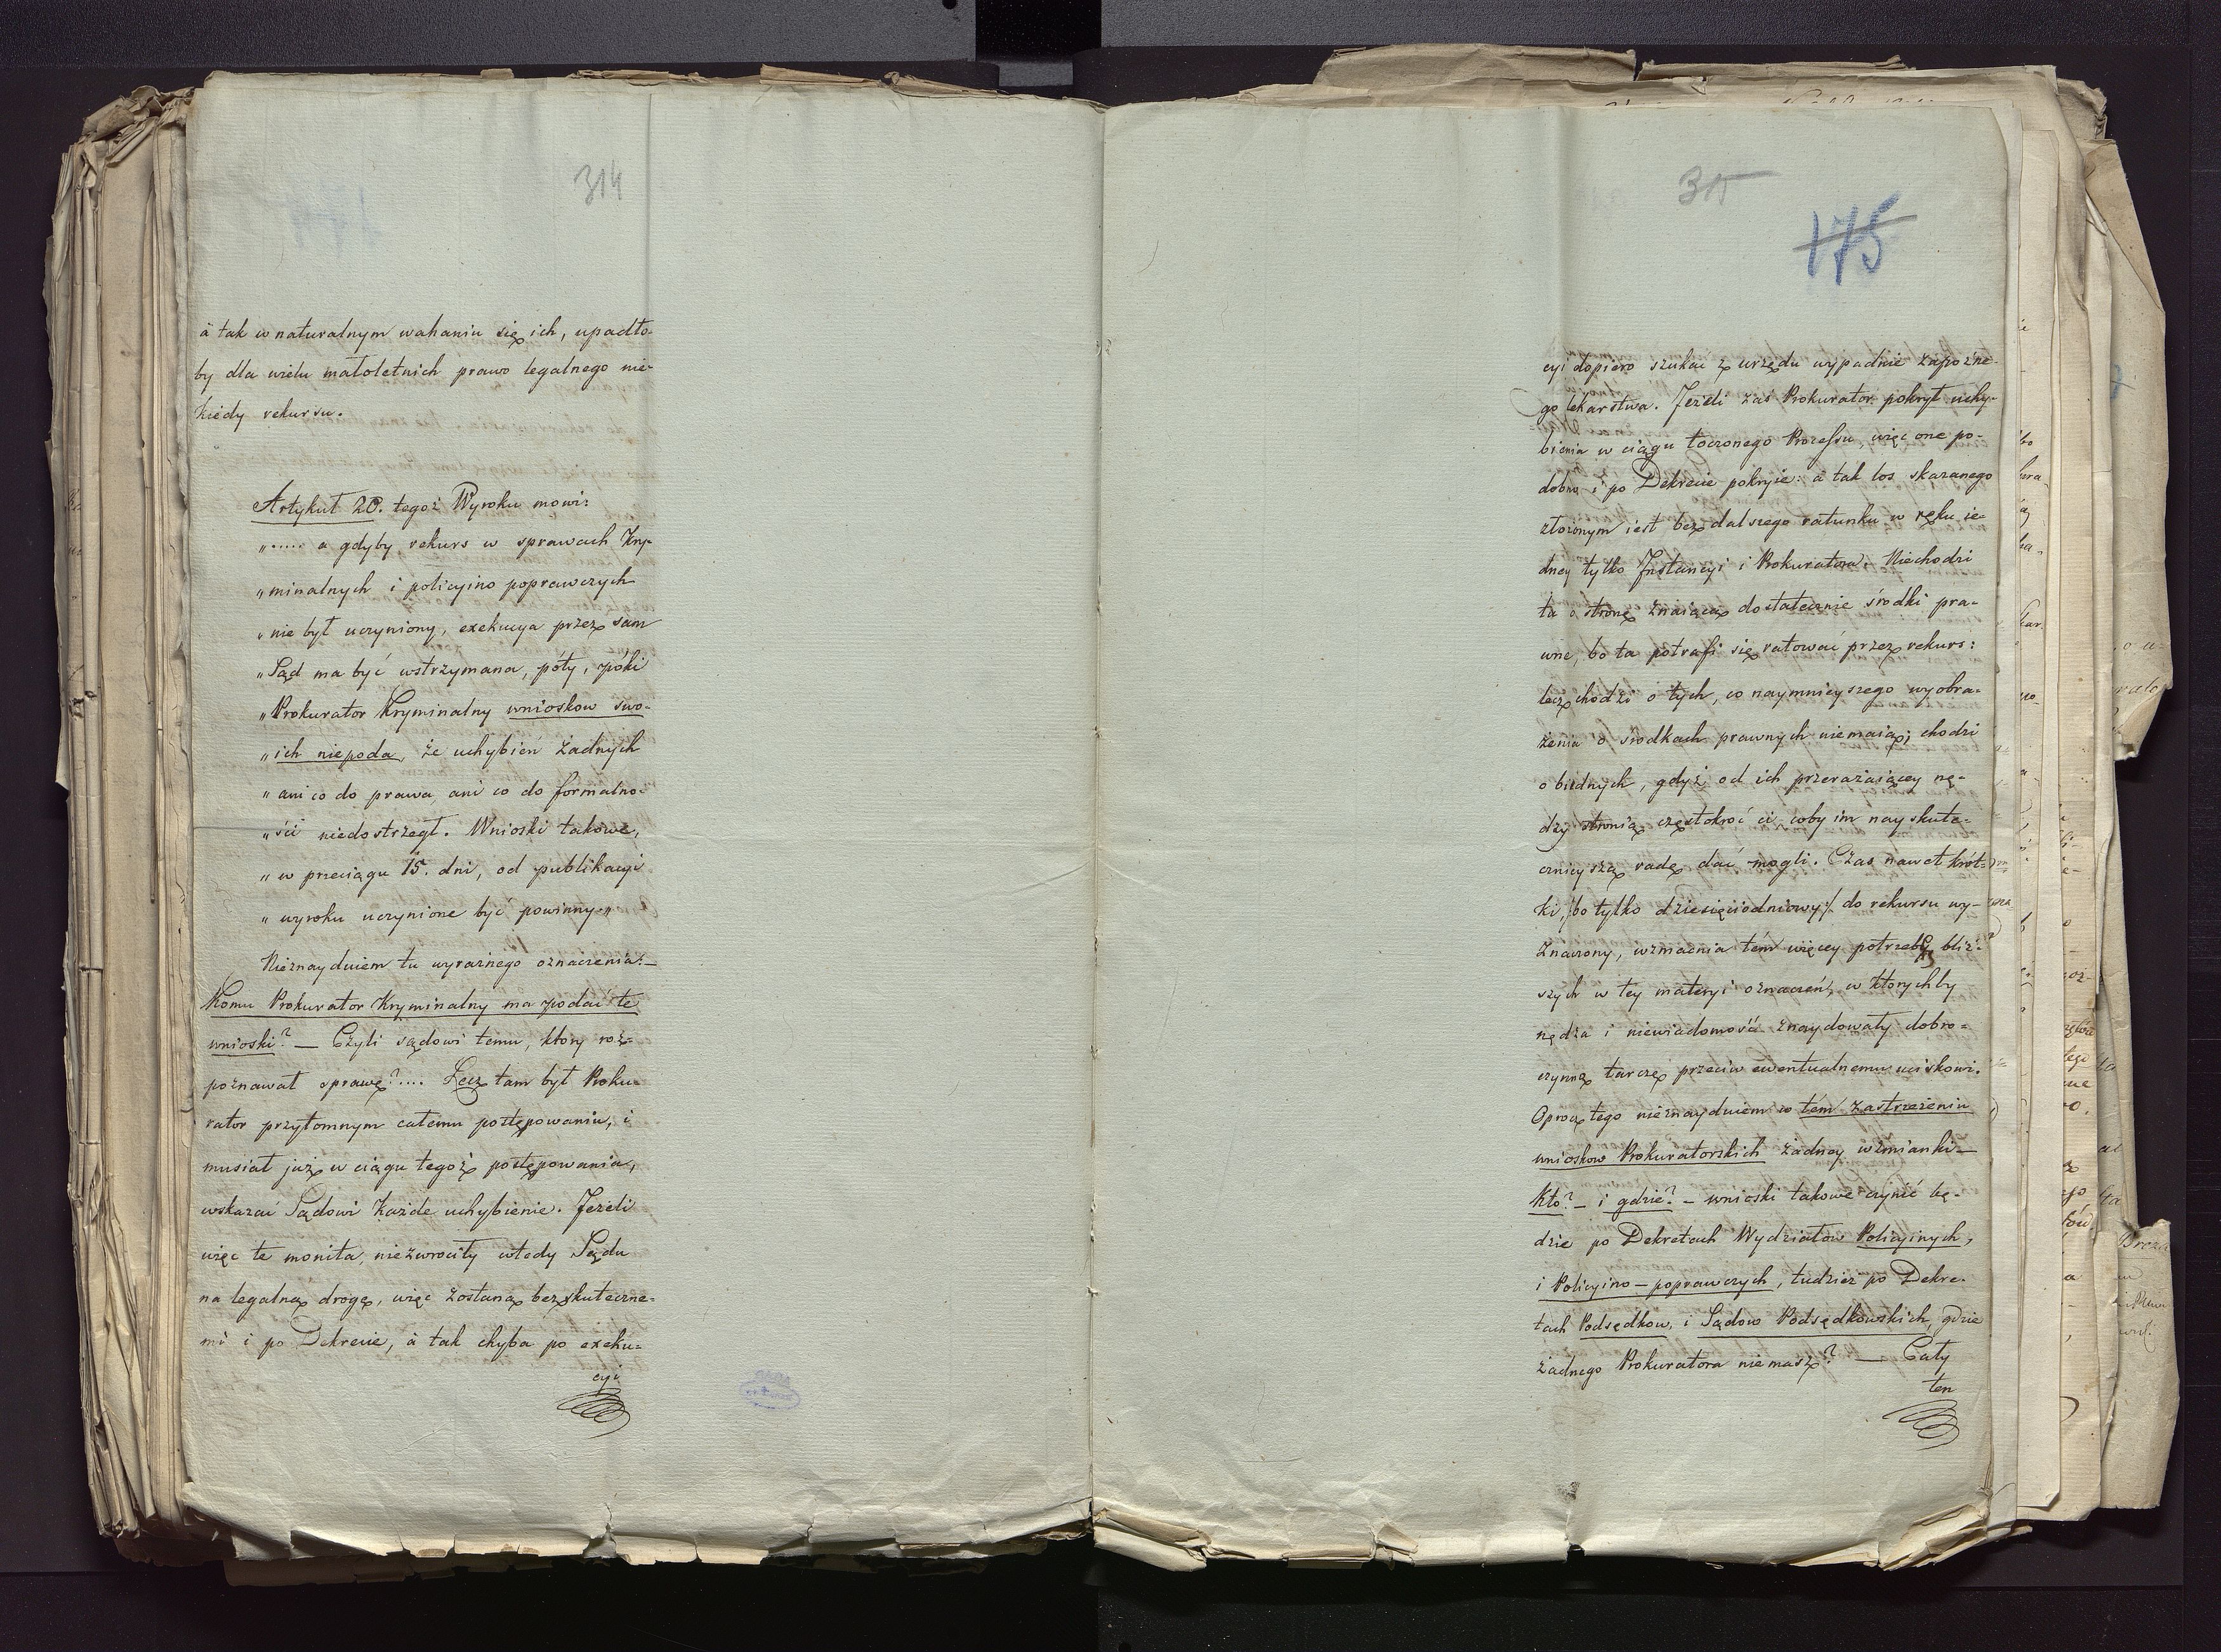 314
à tak w naturalnym wahaniu się ich, upadło-
by dla wielu małoletnich prawo legalnego nie-
kiedy rekursu.
Artykuł 20. tegoż Wyroku mowi:
"..... a gdyby rekurs w sprawach Kry-
"minalnych i policyino poprawczych
"nie był uczyniony, exekucya przez sam
"Sąd ma być wstrzymana, póty, póki
"Prokurator Kryminalny wnioskow swo-
"ich niepoda, że uchybień żadnych
"ani co do prawa, ani co do formalno-
"ści niedostrzegł. Wnioski takowe,
"w przeciągu 15. dni, od publikacyi
"wyroku uczynione być powinny."
Nieznayduiem tu wyraźnego oznaczenia:—
Komu Prokurator Kryminalny ma podać te
wnioski? — Czyli sądowi temu, który roz-
poznawał sprawę?.... Lecz tam był Proku-
rator przytomnym całemu postępowaniu, i
musiał już w ciągu tegoż postępowania,
wskazać Sądowi każde uchybienie. Jeżeli
więc te monita, niezwrociły wtedy Sądu
na legalną drogę, więc zostaną bezskuteczne-
mi i po Dekrecie, à tak chyba po exeku-
cyi
315
175
cyi dopiero szukać z urzędu wypadnie zapoźne-
go lekarstwa. Jeżeli zaś Prokurator pokrył uchy-
bienia w ciągu toczonego Processu, więc one po-
dobno i po Dekrecie pokryie: à tak los skazanego
złożonym iest bez dalszego ratunku w ręku ie-
dney tylko Instancyi i Prokuratora. Niechodzi
tu o stronę znaiącą dostatecznie środki pra-
wne, bo ta potrafi się ratować przez rekurs:
lecz chodzi o tych, co naymnieyszego wyobra-
żenia o środkach prawnych niemaią; chodzi
o biednych, gdyż od ich przerażaiącey nę-
dzy stronią częstokroć ci, coby im nayskute-
cznieyszą radę dać mogli. Czas nawet krót-
ki, /:bo tylko dziesięciodniowy:/ do rekursu wy-
znaczony, wzmacnia tém więcey potrzebę bliż-
szych w tey materyi oznaczeń, w którychby
nędza i niewiadomość znaydowały dobro-
czynną tarczę przeciw ewentualnemu uciskowi.
Oprocz tego nieznayduiem w tém zastrzeżeniu
wnioskow Prokuratorskich żadney wzmianki—
Kto? — i gdzie? — wnioski takowe czynić bę-
dzie po Dekretach Wydziałow Policyinych,
i Policyino-poprawczych, tudzież po Dekre-
tach Podsędkow, i Sądow Podsędkowskich, gdzie
żadnego Prokuratora niemasz? — Cały
ten